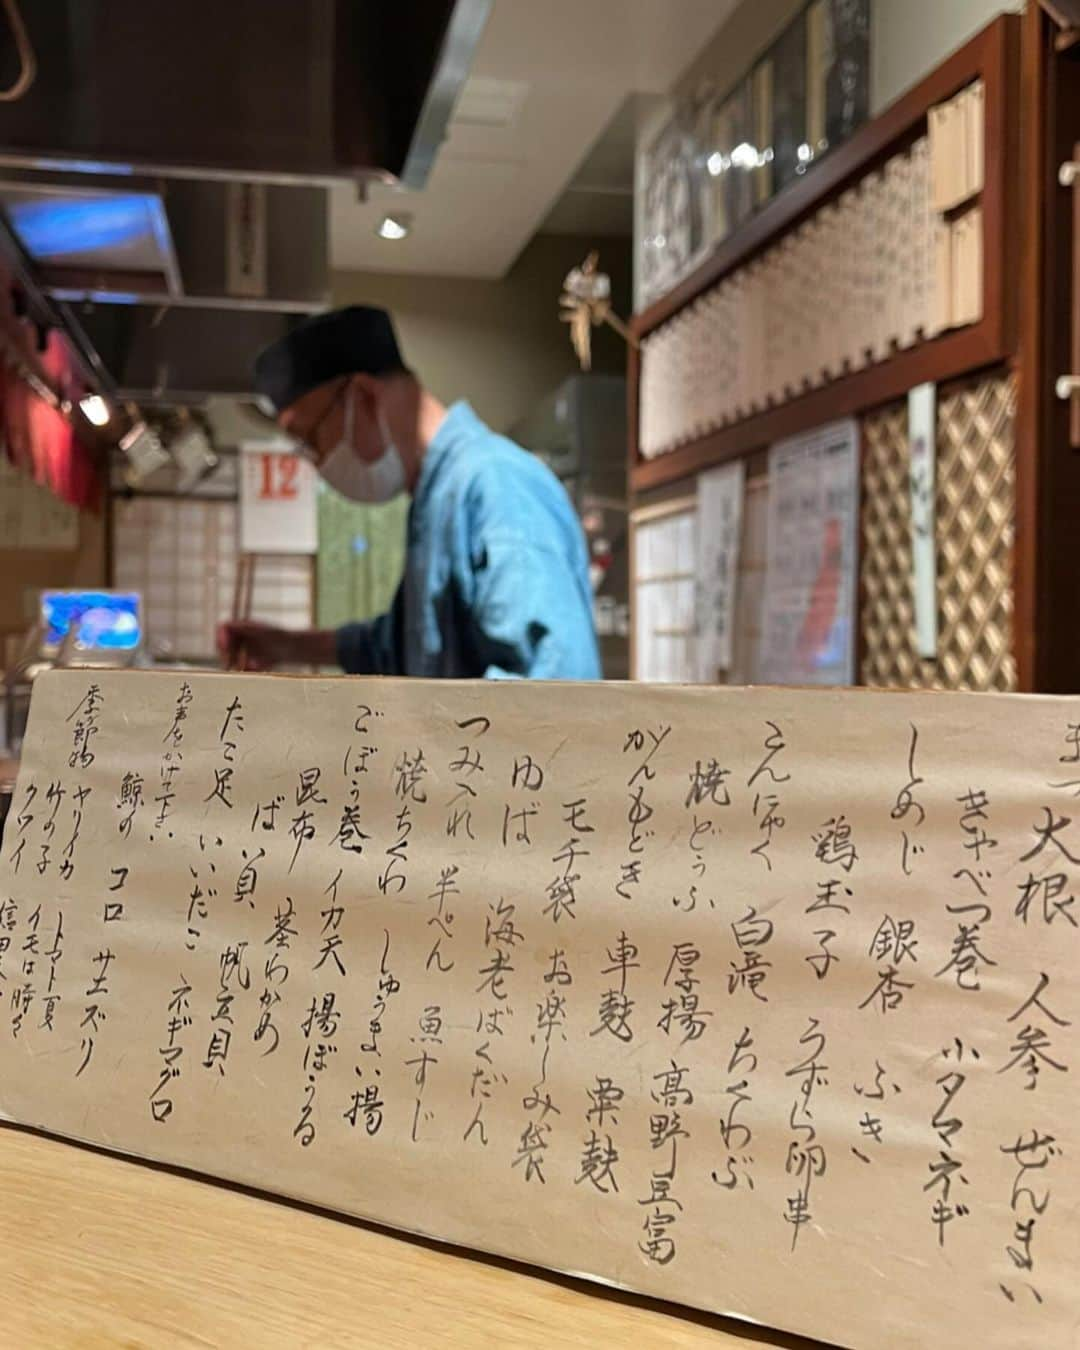 大根 人参 ぜんまい
きゃべつ巻 小タマネギ
しめじ 銀杏 ふき
鶏玉子 うずら卵串
こんにゃく 白滝 ちくわぶ
焼どうふ 厚揚 高野豆富
がんもどき 車麩 粟麩
モチ袋 お楽しみ袋
ゆば 海老ばくだん
つみれ 半ぺん 魚すじ
焼ちくわ しゅうまい揚
ごぼう巻 イカ天 揚ぼうる
昆布 茎わかめ
ばい貝 帆立貝
たこ足 いいだこ ネギマグロ
お声をかけて下さい
鯨の コロ サエズリ
季節物 ヤリイカ トマト夏
竹の子 イモは時々
クワイ
12